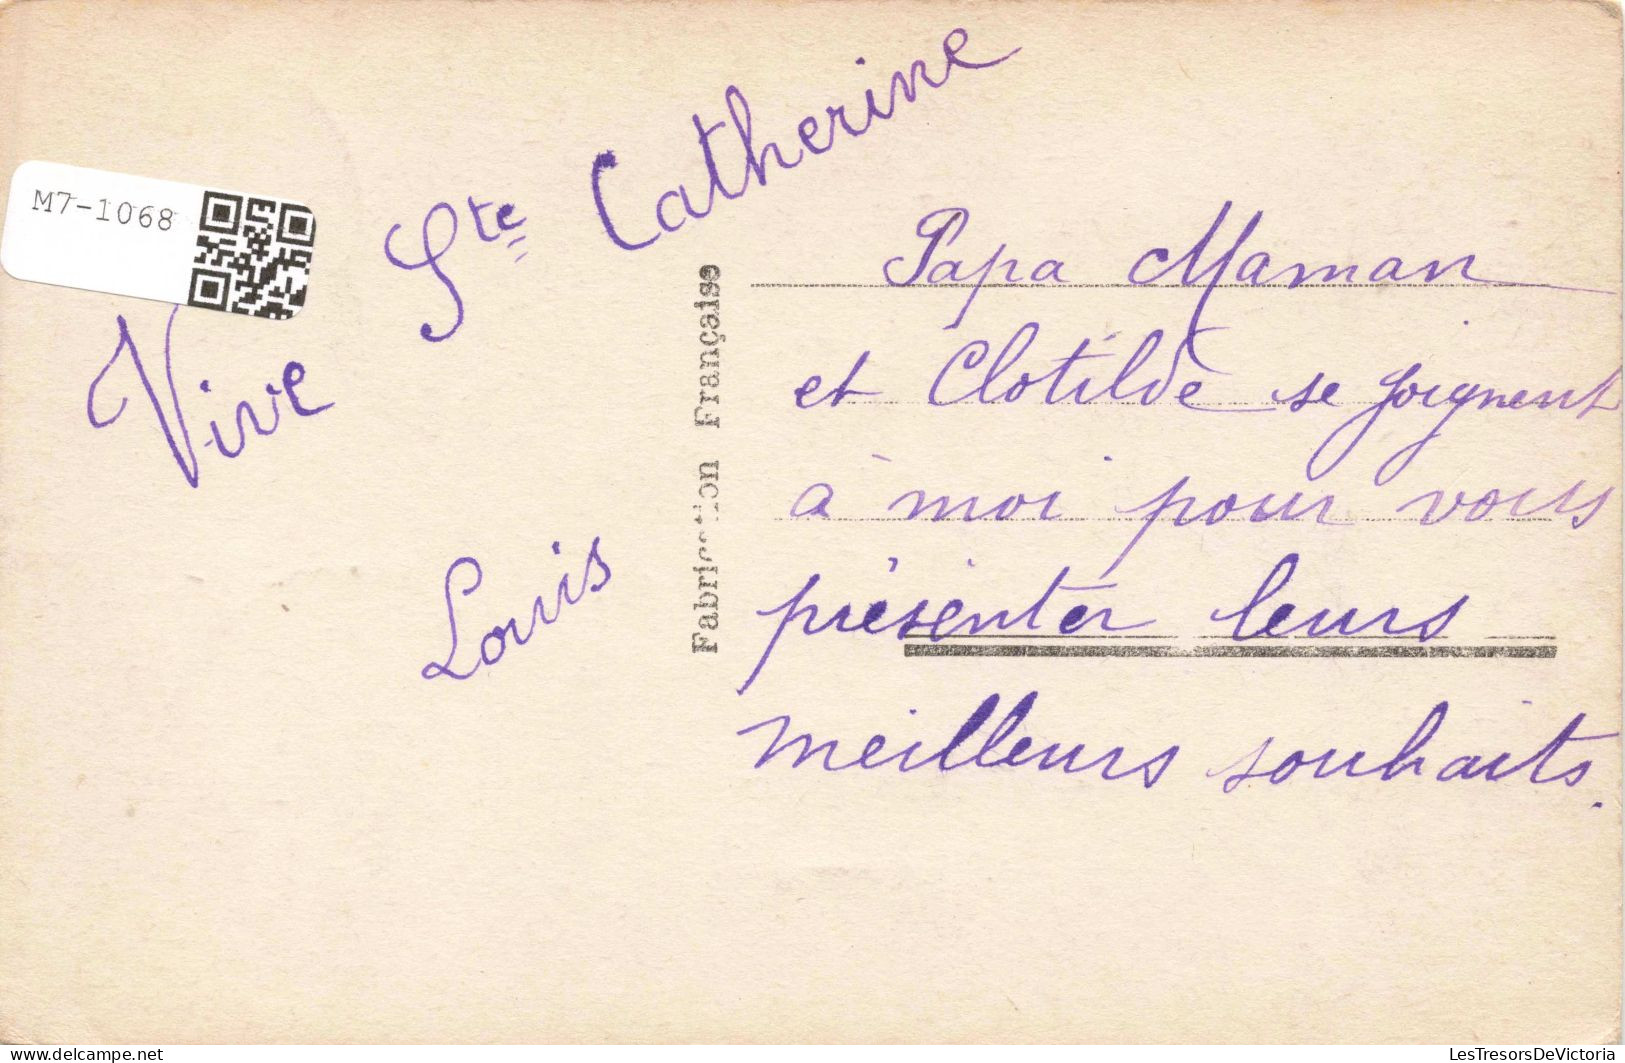 M7-1068
Vive Ste Catherine
Louis
Fabrication Française
Papa Maman
et Clotilde se joignent
à moi pour vous
présenter leurs
meilleurs souhaits.
www.delcampe.net
LesTresorsDeVictoria